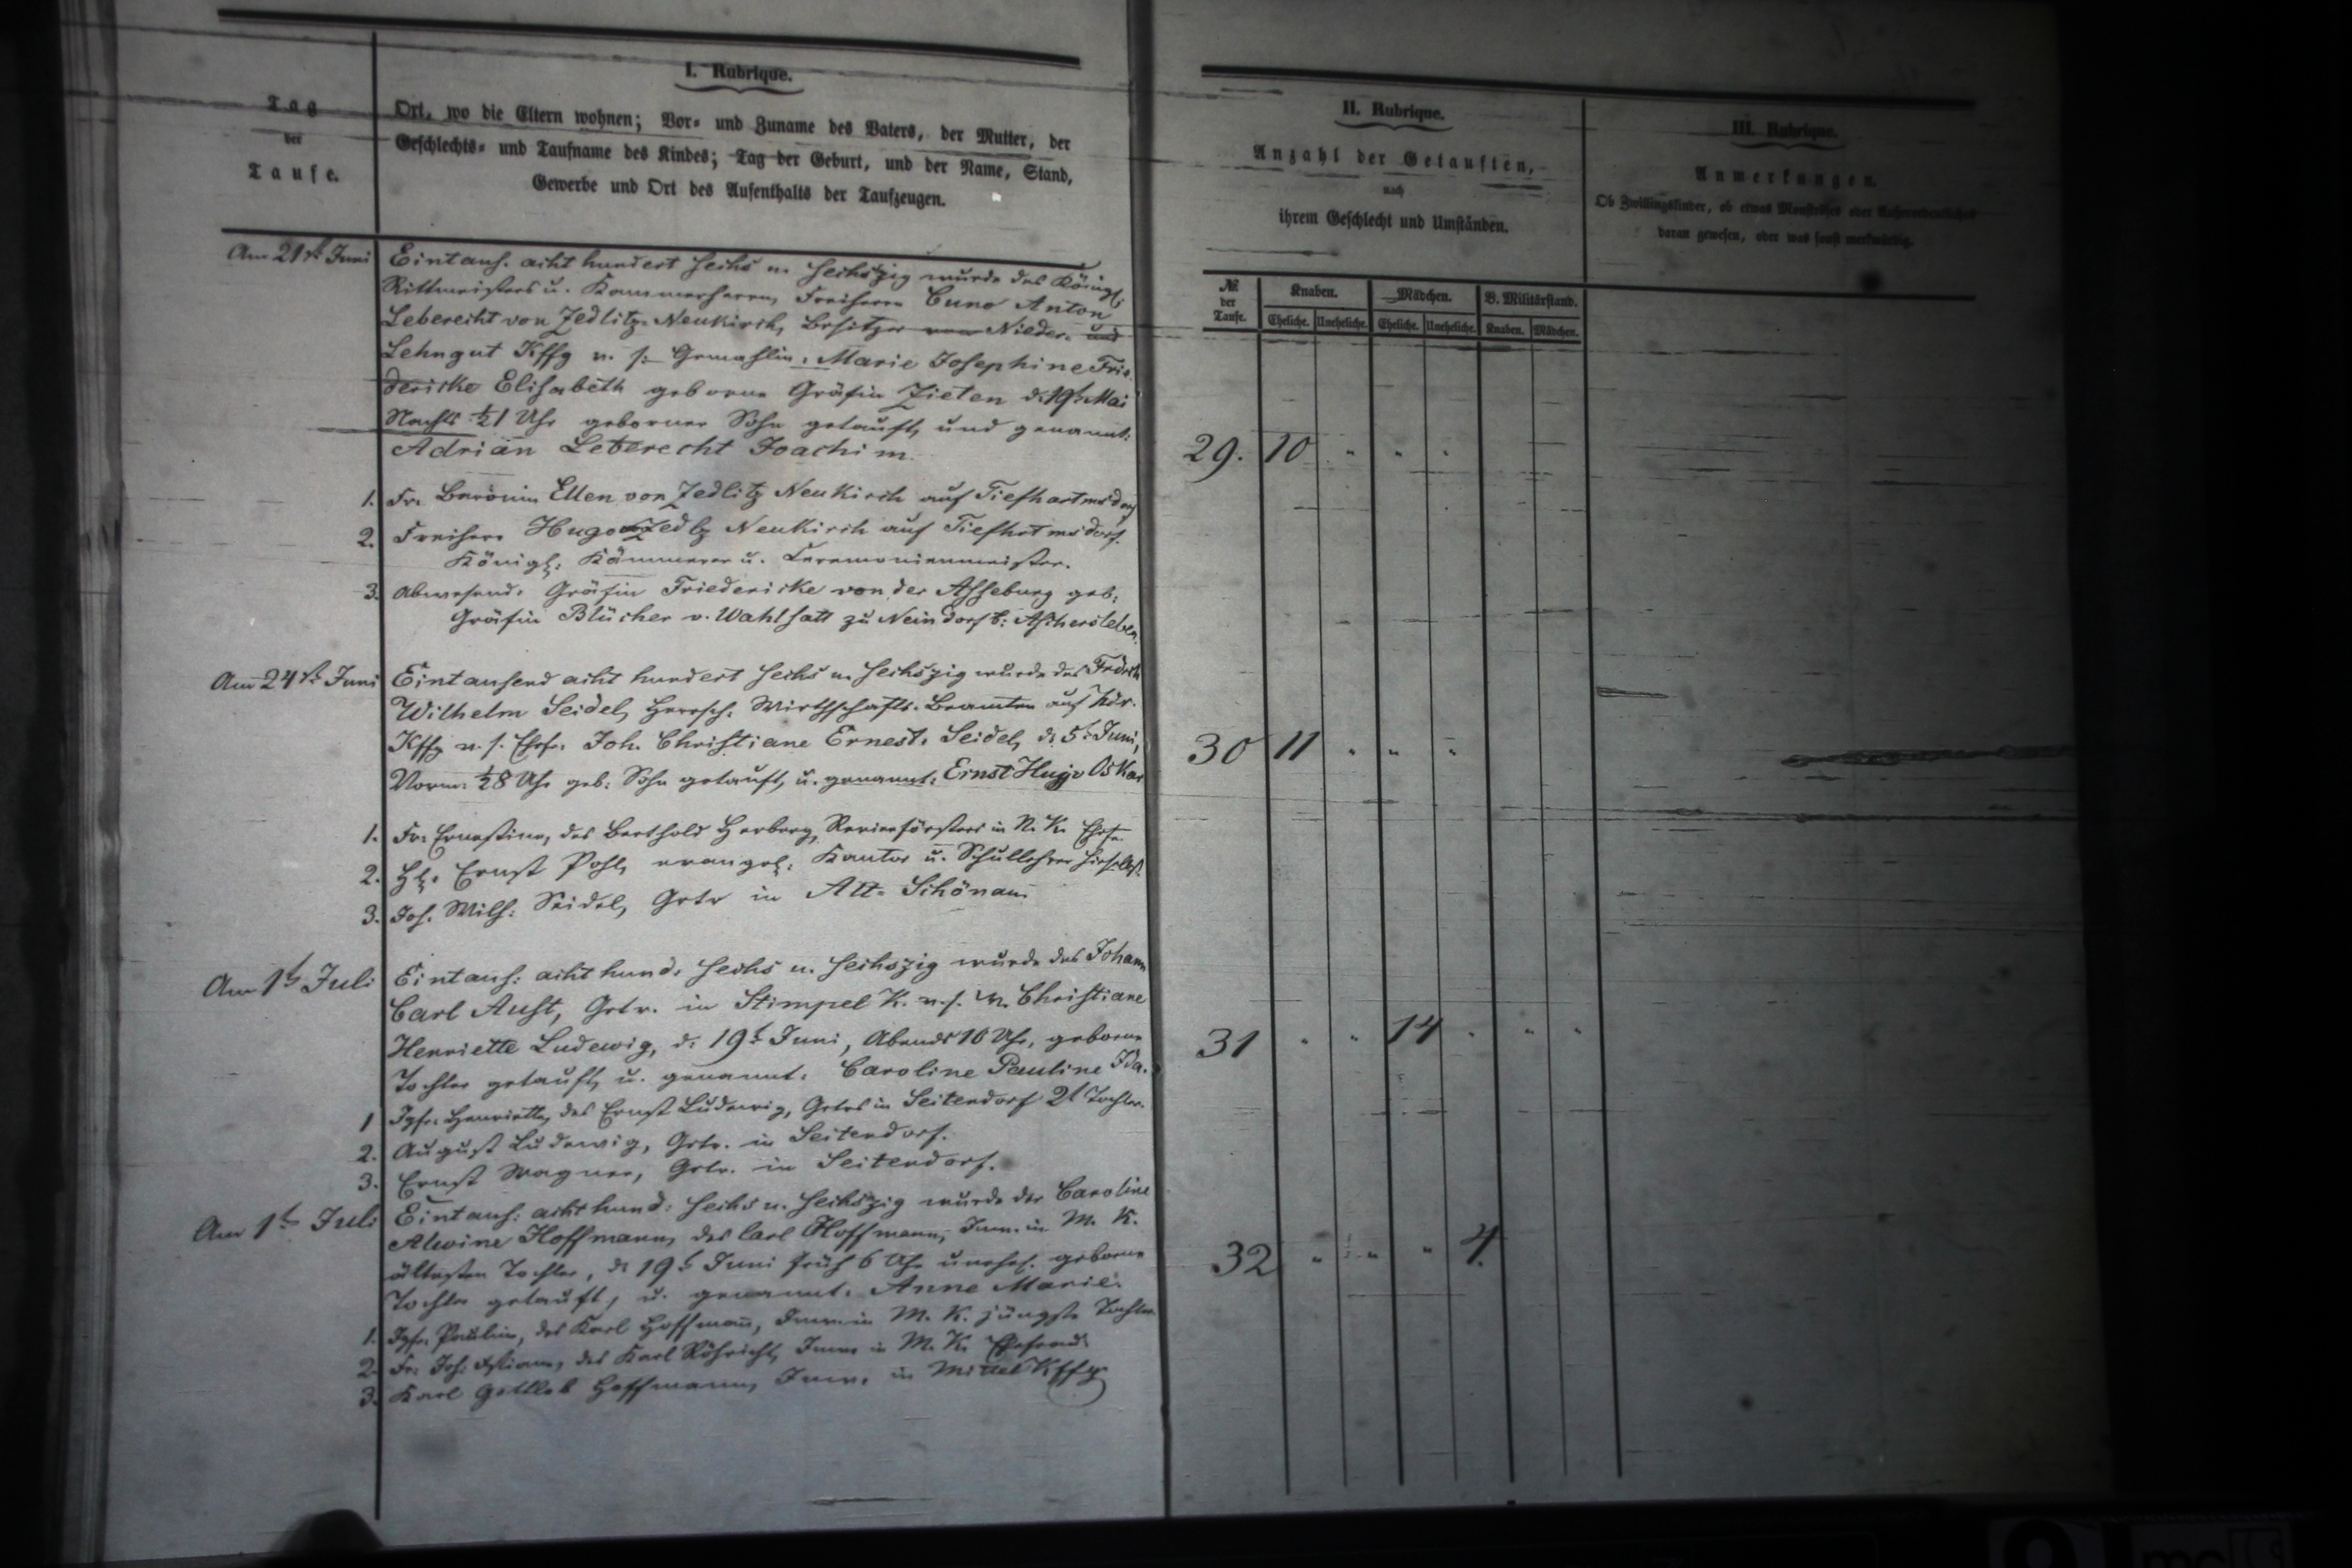 I. Rubrique.
Tag
der
Taufe.
Ort, wo die Eltern wohnen; Vor- und Zuname des Vaters, der Mutter, der
Geschlechts- und Taufname des Kindes; Tag der Geburt, und der Name, Stand,
Gewerbe und Ort des Aufenthalts der Taufzeugen.
II. Rubrique.
Anzahl der Getauften,
nach
ihrem Geschlecht und Umständen.
III. Rubrique.
Anmerkungen.
Ob Zwillingskinder, ob etwas Monströses oder Außerordentliches
daran gewesen, oder was sonst merkwürdig.
№ der Taufe.
Knaben. Mädchen. B. Militärstand.
Eheliche. Uneheliche. Eheliche. Uneheliche. Knaben. Mädchen.
Am 21st Juni Eintaus. acht hundert sechs u. sechszig wurde des Königl:
Rittmeisters u. Kammerherrn, Freiherrn Cuno Anton
Leberecht von Zedlitz-Neukirch, Besitzer von Nieder- und
Lehngut Kffg u. s: Gemahlin: Marie Josephine Frie-
dericke Elisabeth geborne Gräfin Zieten d. 19t Mai
Nachts ½1 Uhr geborner Sohn getauft, und genannt:
Adrian Leberecht Joachim.
29. 10 " " "
1. Fr. Baronin Ellen von Zedlitz Neukirch auf Tiefhartmsdorf
2. Freiherr Hugo v. Zedlz Neukirch auf Tiefhrtmsdorf.
Königl: Kämmerer u. Ceremonienmeister.
3. Abwesend: Gräfin Friedericke von der Asseburg geb:
Gräfin Blücher v. Wahlstatt zu Neindorf b: Aschersleben.
Am 24st Juni Eintausend acht hundert sechs u. sechszig wurde des Friedrich
Wilhelm Seidel, herrsch: Wirthschafts-Beamten auf Ndr.
Kffg u. s. Ehefr. Joh. Christiane Ernest. Seidel, d. 5t Juni,
Vorm: ½8 Uhr geb: Sohn getauft, u. genannt: Ernst Hugo Oskar
30 11 " " "
1. Fr. Ernestine, des Berthold Herberg, Revierförsters in N. K. Ehefr.
2. H. Ernst Pohl, evangel: Kantor u. Schullehrer hieselbst.
3. Joh. Wilh: Seidel, Grtr in Alt-Schönau
Am 1t Juli Eintaus: acht hund: sechs u. sechszig wurde des Johann
Carl Aust, Grtr. in Stimpel K. u. s. W. Christiane
Henriette Ludewig, d: 19t Juni, Abends 10 Uhr, geborne
Tochter getauft, u. genannt: Caroline Pauline Ida.
31 " " 14 " " "
1 Jgfr. Henriette, des Ernst Ludewig, Grtrs in Seitendorf 2t Tochter.
2. August Ludewig, Grtr. in Seitendorf.
3. Ernst Wagner, Grtr. in Seitendorf.
Am 1t Juli Eintaus: acht hund: sechs u. sechszig wurde der Caroline
Alwine Hoffmann, des Carl Hoffmann, Inw. in M. K.
ältesten Tochter, d. 19t Juni früh 6 Uhr unehel. geborne
Tochter getauft, u. genannt: Anne Marie.
32 " " " 4.
1. Jgfr. Pauline, des Karl Hoffmann, Inw. in M. K. jüngste Tochter
2. Fr. Joh: des Karl Röhricht, Inw. in M. K. Ehefrau
3. Karl Gottlob Hoffmann, Inw. in Mittel Kffg